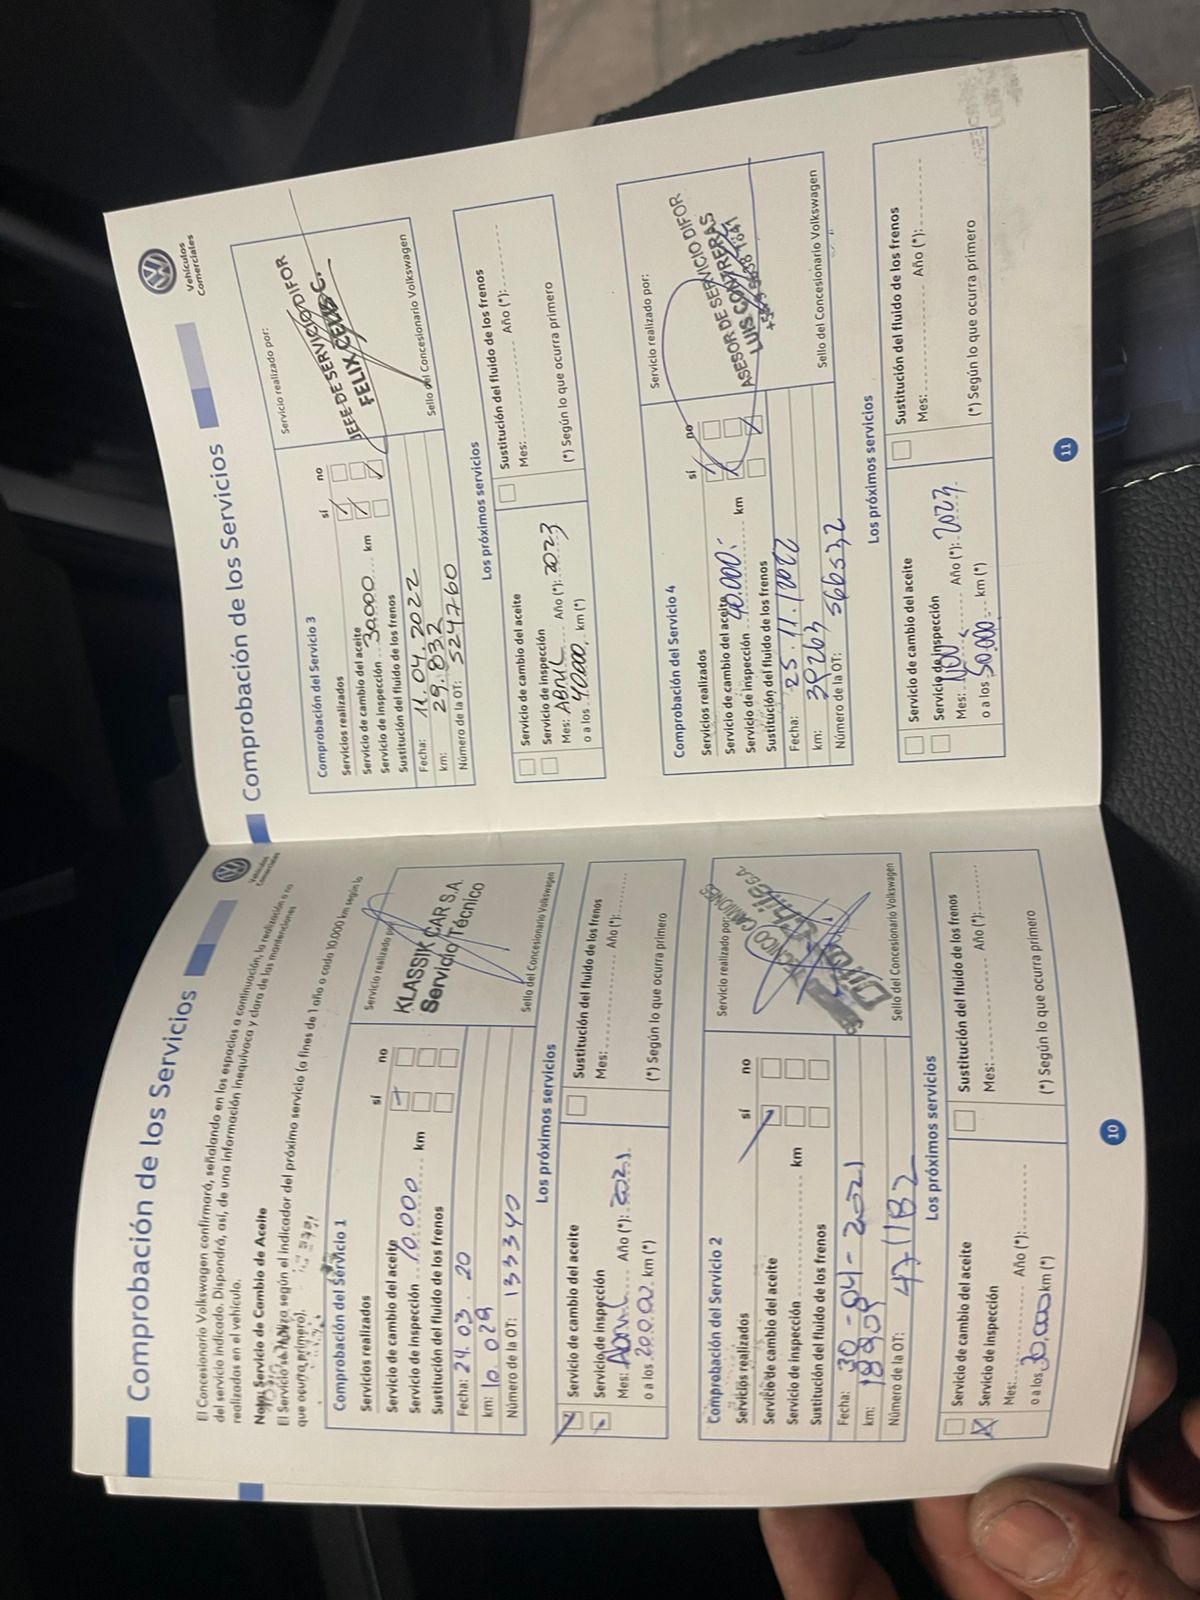 Comprobación de los Servicios
Vehículos
Comerciales
El Concesionario Volkswagen confirmará, señalando en los espacios a continuación, la realización o no
del servicio indicado. Dispondrá, así, de una información inequívoca y clara de las mantenciones
realizadas en el vehículo.
Nota: Servicio de Cambio de Aceite
El Servicio se realiza según el indicador del próximo servicio (a fines de 1 año o cada 10.000 km según lo
que ocurra primero).
Comprobación del Servicio 1
Servicios realizados sí no
Servicio de cambio del aceite
Servicio de inspección 10.000 km
Sustitución del fluido de los frenos
Fecha: 24.03.20
km: 10.029
Número de la OT: 133340
Servicio realizado por:
KLASSIK CAR S.A.
Servicio Técnico
Sello del Concesionario Volkswagen
Los próximos servicios
Servicio de cambio del aceite
Servicio de inspección
Mes: Abril Año (*): 2021
o a los 20.000 km (*)
Sustitución del fluido de los frenos
Mes: Año (*):
(*) Según lo que ocurra primero
Comprobación del Servicio 2
Servicios realizados sí no
Servicio de cambio del aceite
Servicio de inspección km
Sustitución del fluido de los frenos
Fecha: 30-04-2021
km: 18909
Número de la OT: 471182
Servicio realizado por:
TECNICO CAMIONES
Chile S.A.
Sello del Concesionario Volkswagen
Los próximos servicios
Servicio de cambio del aceite
Servicio de inspección
Mes: Año (*):
o a los 30,000 km (*)
Sustitución del fluido de los frenos
Mes: Año (*):
(*) Según lo que ocurra primero
10
Comprobación de los Servicios
Vehículos
Comerciales
Comprobación del Servicio 3
Servicios realizados sí no
Servicio de cambio del aceite
Servicio de inspección 30.000 km
Sustitución del fluido de los frenos
Fecha: 11.04.2022
km: 29.832
Número de la OT: 524760
Servicio realizado por:
JEFE DE SERVICIO DIFOR
FELIX CELIS C.
Sello del Concesionario Volkswagen
Los próximos servicios
Servicio de cambio del aceite
Servicio de inspección
Mes: Abril Año (*): 2023
o a los 40.000 km (*)
Sustitución del fluido de los frenos
Mes: Año (*):
(*) Según lo que ocurra primero
Comprobación del Servicio 4
Servicios realizados sí no
Servicio de cambio del aceite
Servicio de inspección 40.000 km
Sustitución del fluido de los frenos
Fecha: 25.11.2022
km: 39263
Número de la OT: 566532
Servicio realizado por:
ASESOR DE SERVICIO DIFOR
LUIS CONTRERAS
Sello del Concesionario Volkswagen
Los próximos servicios
Servicio de cambio del aceite
Servicio de inspección
Mes: Nov Año (*): 2023
o a los 50.000 km (*)
Sustitución del fluido de los frenos
Mes: Año (*):
(*) Según lo que ocurra primero
11